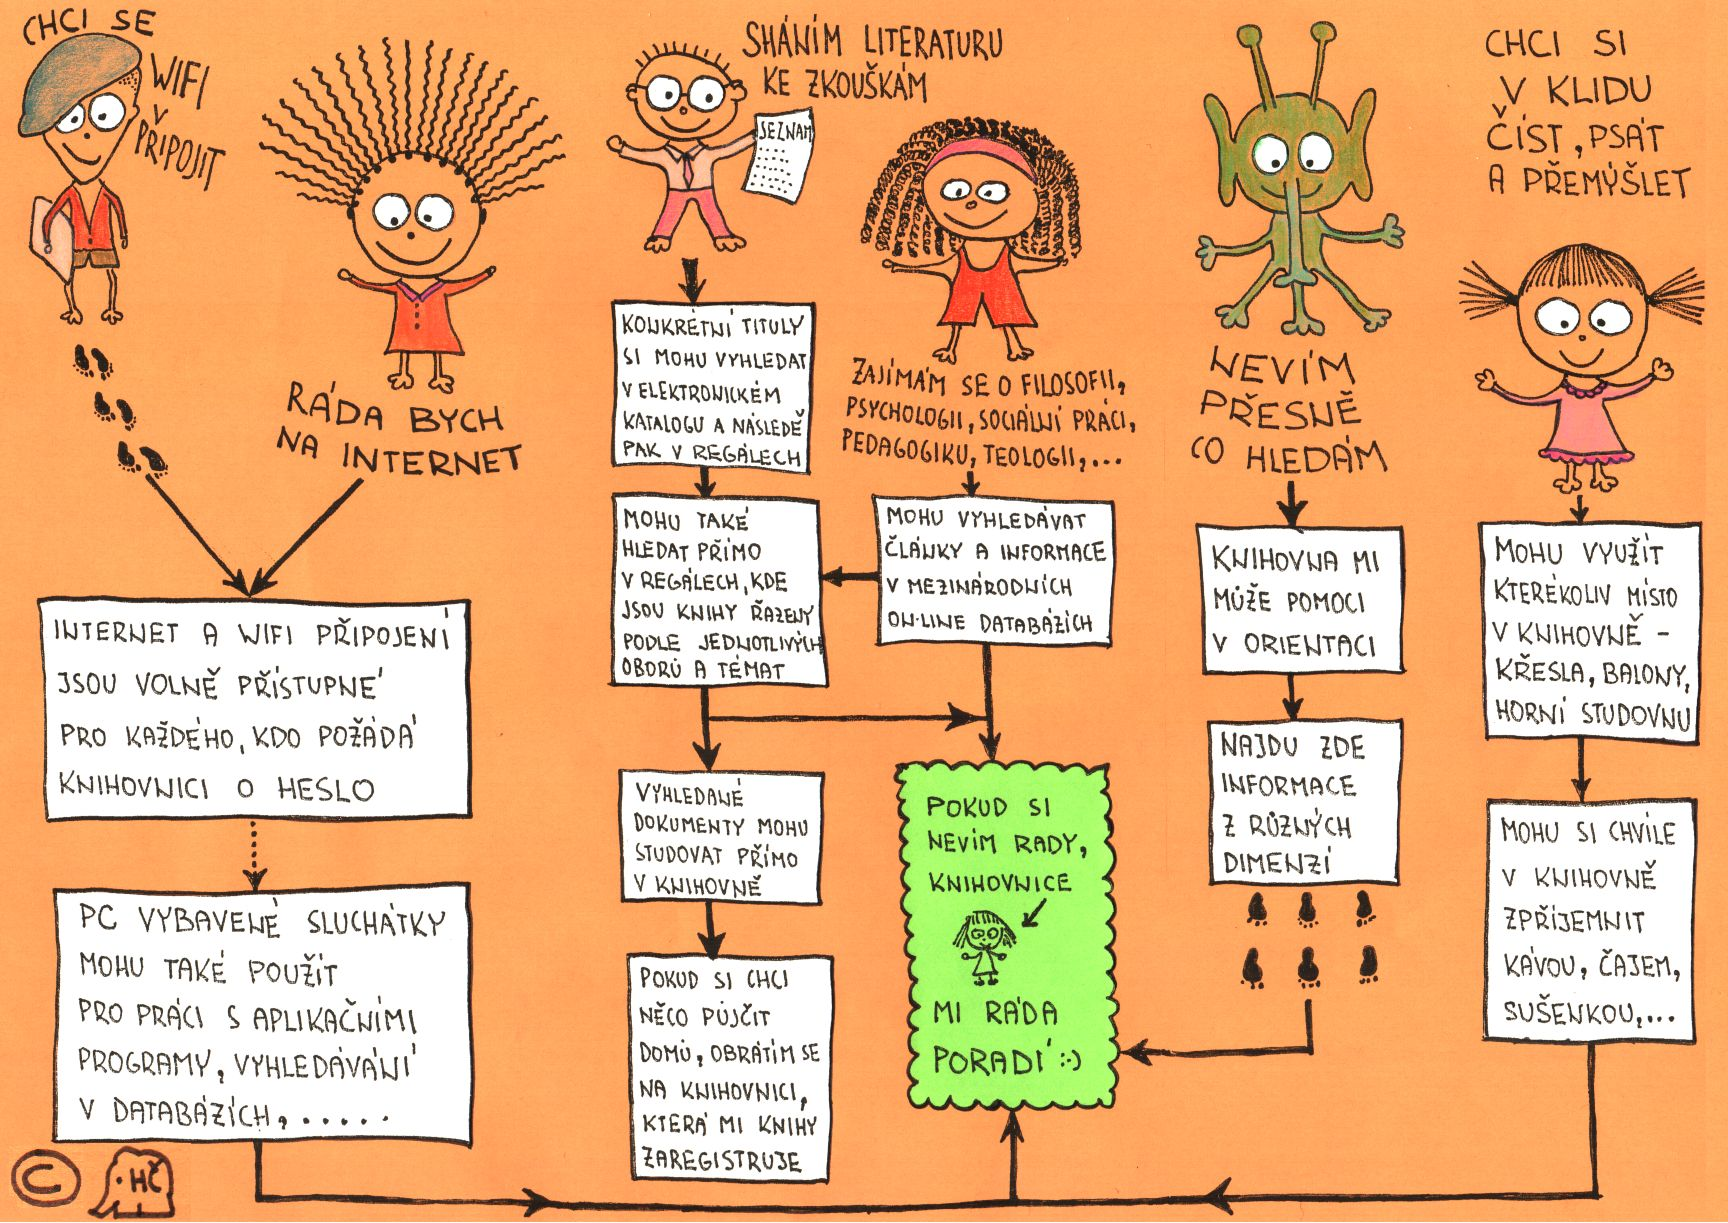 CHCI SE
WIFI
V
PŘIPOJIT
RÁDA BYCH
NA INTERNET
INTERNET A WIFI PŘIPOJENÍ
JSOU VOLNĚ PŘÍSTUPNÉ
PRO KAŽDÉHO, KDO POŽÁDÁ
KNIHOVNICI O HESLO
PC VYBAVENÉ SLUCHÁTKY
MOHU TAKÉ POUŽÍT
PRO PRÁCI S APLIKAČNÍMI
PROGRAMY, VYHLEDÁVÁNÍ
V DATABÁZÍCH, .....
SHÁNÍM LITERATURU
KE ZKOUŠKÁM
SEZNAM
KONKRÉTNÍ TITULY
SI MOHU VYHLEDAT
V ELEKTRONICKÉM
KATALOGU A NÁSLEDĚ
PAK V REGÁLECH
MOHU TAKÉ
HLEDAT PŘÍMO
V REGÁLECH, KDE
JSOU KNIHY ŘAZENY
PODLE JEDNOTLIVÝCH
OBORŮ A TÉMAT
VYHLEDANÉ
DOKUMENTY MOHU
STUDOVAT PŘÍMO
V KNIHOVNĚ
POKUD SI CHCI
NĚCO PŮJČIT
DOMŮ, OBRÁTÍM SE
NA KNIHOVNICI,
KTERÁ MI KNIHY
ZAREGISTRUJE
ZAJÍMÁM SE O FILOSOFII,
PSYCHOLOGII, SOCIÁLNÍ PRÁCI,
PEDAGOGIKU, TEOLOGII,...
MOHU VYHLEDÁVAT
ČLÁNKY A INFORMACE
V MEZINÁRODNÍCH
ON-LINE DATABÁZÍCH
POKUD SI
NEVÍM RADY,
KNIHOVNICE
MI RÁDA
PORADÍ :-)
NEVÍM
PŘESNĚ
CO HLEDÁM
KNIHOVNA MI
MŮŽE POMOCI
V ORIENTACI
NAJDU ZDE
INFORMACE
Z RŮZNÝCH
DIMENZÍ
CHCI SI
V KLIDU
ČÍST, PSÁT
A PŘEMÝŠLET
MOHU VYUŽÍT
KTERÉKOLIV MÍSTO
V KNIHOVNĚ -
KŘESLA, BALONY,
HORNÍ STUDOVNU
MOHU SI CHVÍLE
V KNIHOVNĚ
ZPŘÍJEMNIT
KÁVOU, ČAJEM,
SUŠENKOU,...
© HČ